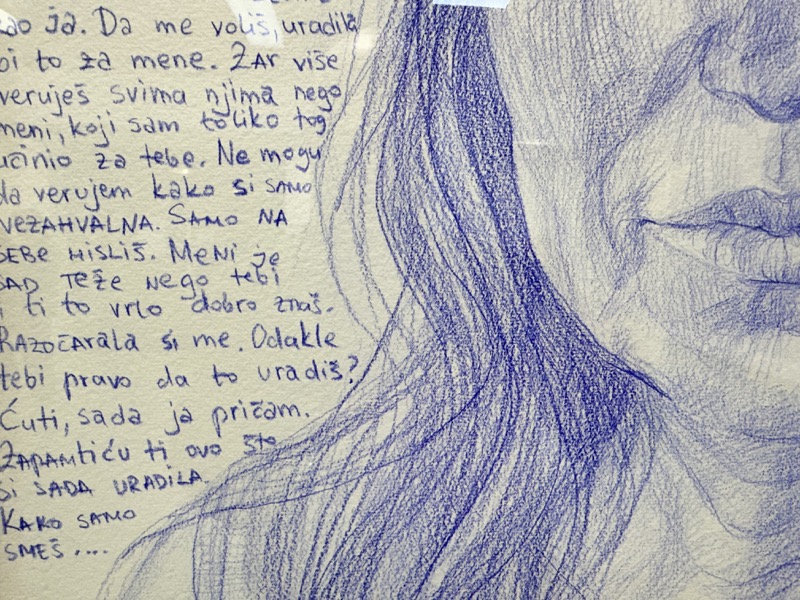 kao ja. Da me voliš, uradila
bi to za mene. Zar više
veruješ svima njima nego
meni, koji sam toliko tog
učinio za tebe. Ne mogu
da verujem kako si SAMO
NEZAHVALNA. SAMO NA
SEBE MISLIŠ. MeNi je
SAD TEŽE Nego tebi
i ti to vrlo dobro znaš.
RAZOČArala si me. Odakle
tebi pravo da to uradiš?
Ćuti, sada ja pričam.
ZAPAMTiću ti ovo što
si SADA URADILA.
KAKO SAMO
SMEŠ ....